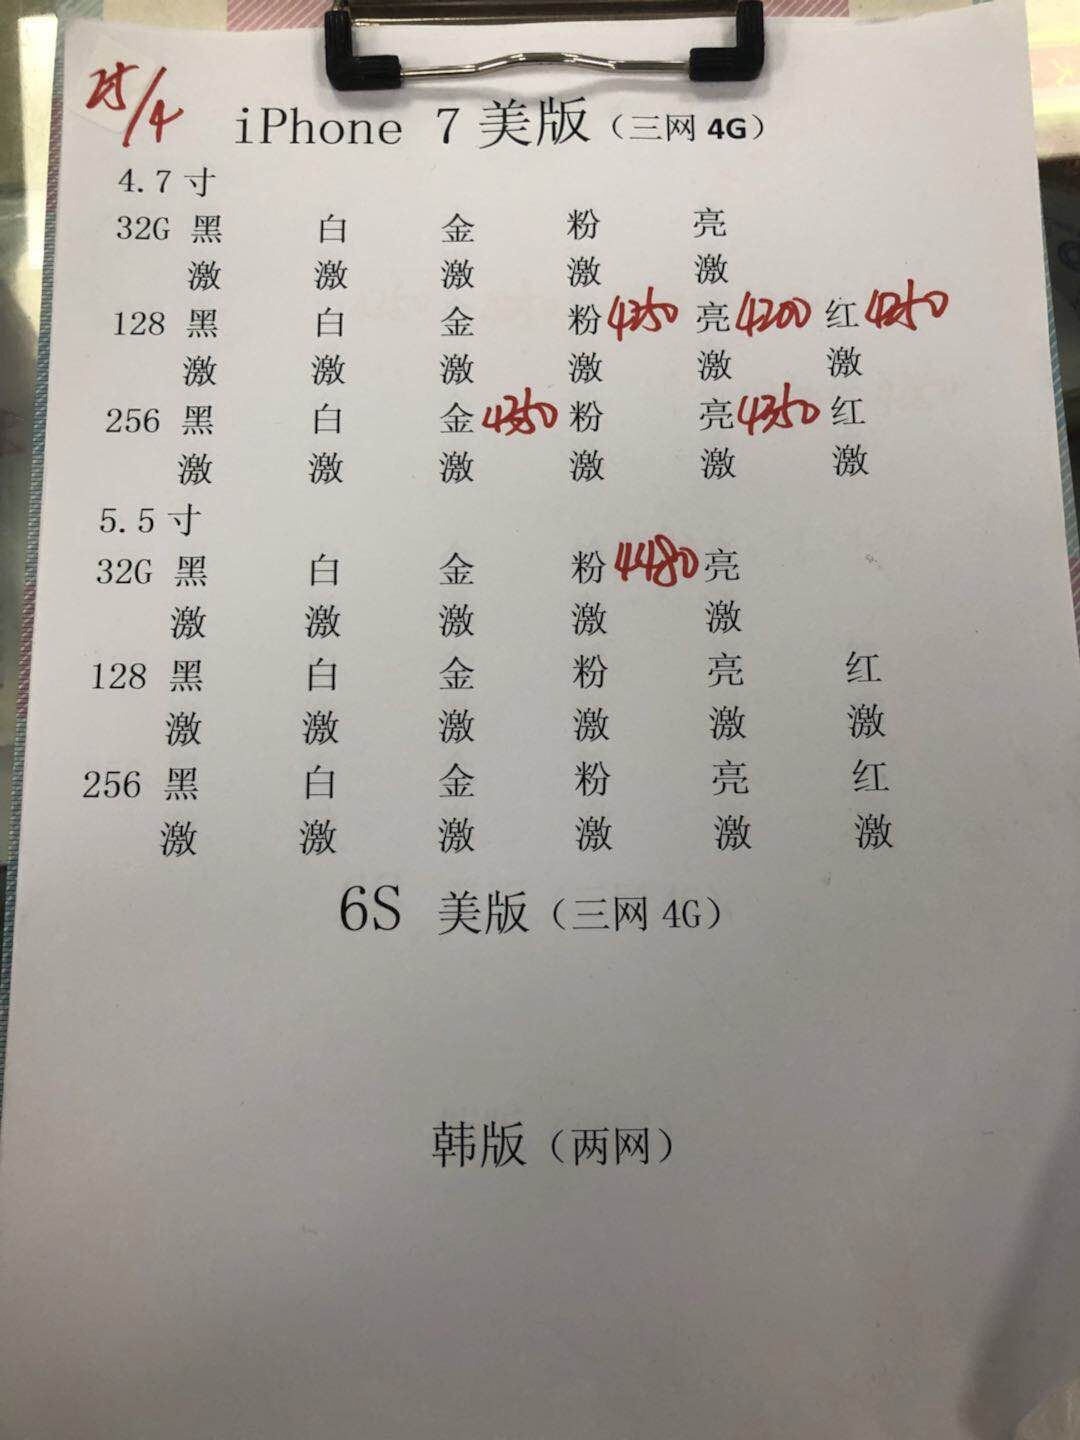 25/4
iPhone 7 美版（三网 4G）
4.7 寸
32G 黑 白 金 粉 亮
激 激 激 激 激
128 黑 白 金 粉 4350 亮 4200 红 4250
激 激 激 激 激 激
256 黑 白 金 4350 粉 亮 4350 红
激 激 激 激 激 激
5.5 寸
32G 黑 白 金 粉 4480 亮
激 激 激 激 激
128 黑 白 金 粉 亮 红
激 激 激 激 激 激
256 黑 白 金 粉 亮 红
激 激 激 激 激 激
6S 美版（三网 4G）
韩版（两网）